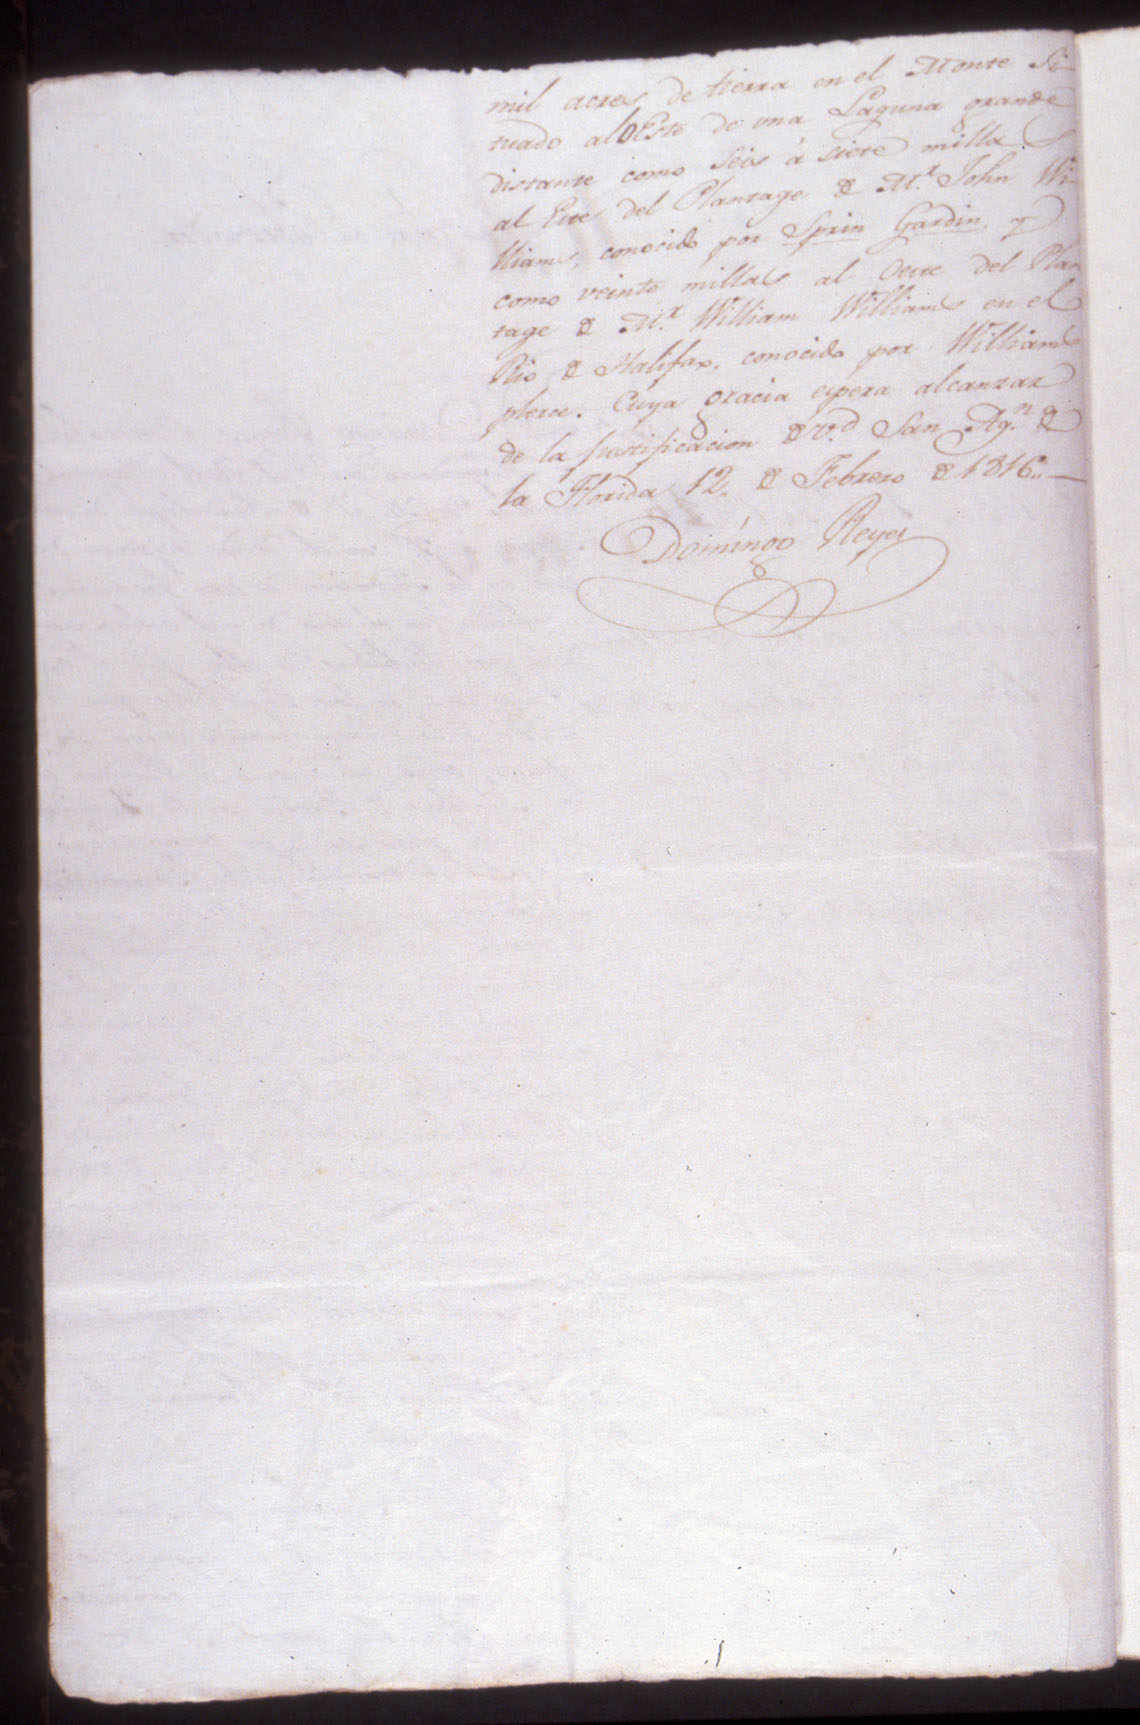 mil acres de tierra en el Monte Si-
tuado al OEste de una Laguna grande
distante como séis á siete millas
al Este del Plantage de Mr. John Wi-
lliams, conocido por Sprin Gardin y
como veinte millas al Oeste del Plan
tage de Mr. William Williams en el
Rio de Halifax, conocido por Williams
plece. Cuya gracia espera alcanzar
de la justificacion de V.d San Ag.n de
la Florida 12. de Febrero de 1816.
Domíngo Reyes